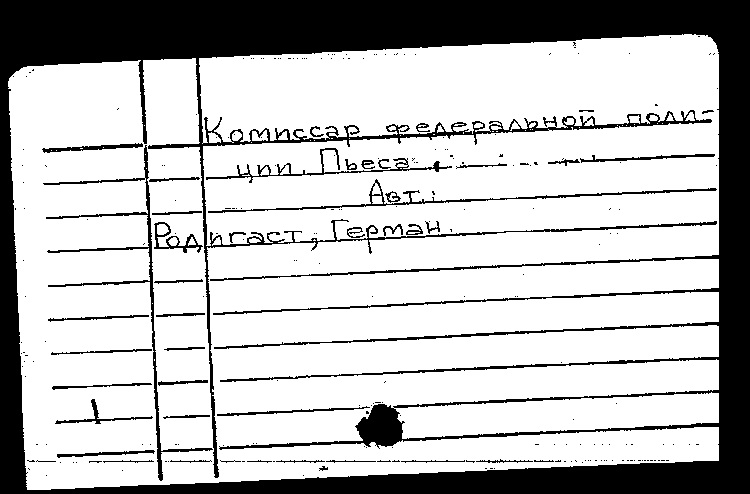 Комиссар федеральной поли-
ции. Пьеса
Авт.:
Родигаст, Герман.